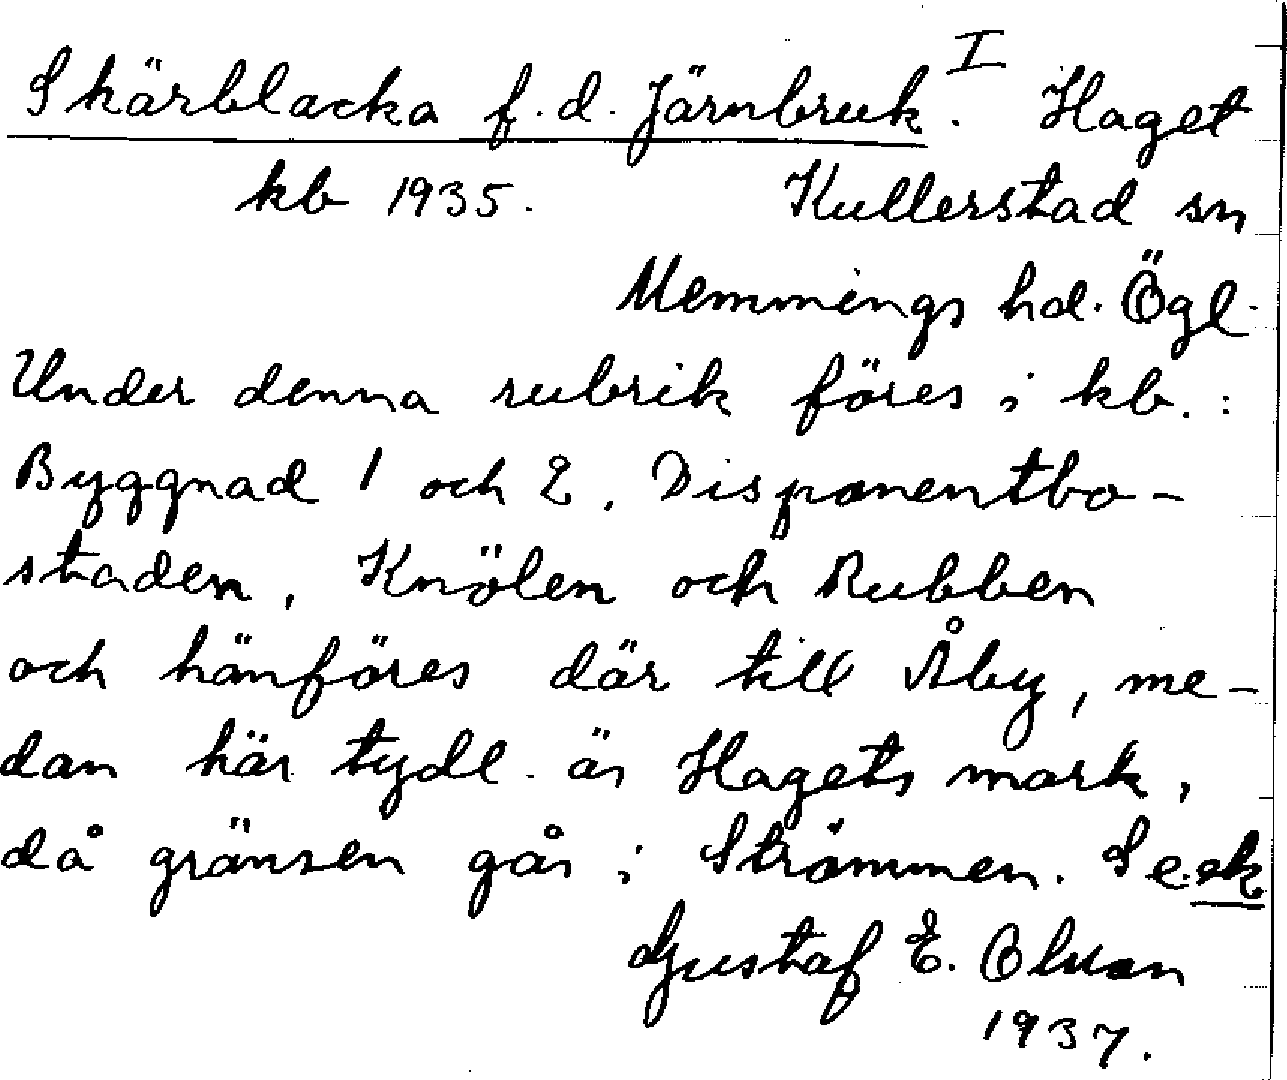 Skärblacka f.d. Järnbruk. I Haget
kb 1935. Kullerstad sn
Memmings hd. Ögl.
Under denna rubrik föres i kb. :
Byggnad 1 och 2, Disponentbo-
staden, Knölen och Rubben
och hänföres där till Åby, me-
dan här tydl. är Hagets mark,
då gränsen går i Strömmen. Se ek
Gustaf E. Olsson
1937.